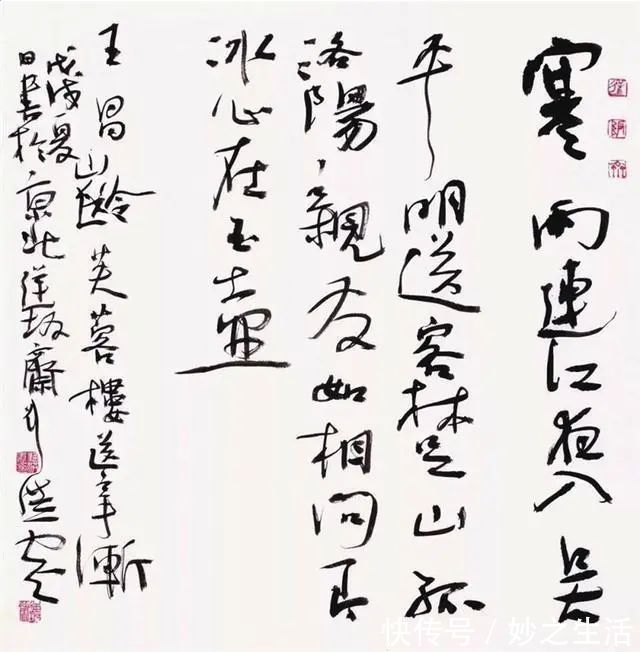 寒雨連江夜入吴
平明送客楚山孤
洛陽親友如相问一片
冰心在玉壺
王昌齡芙蓉樓送辛漸
戊戌夏
日書於京北
快传号 / 妙之生活